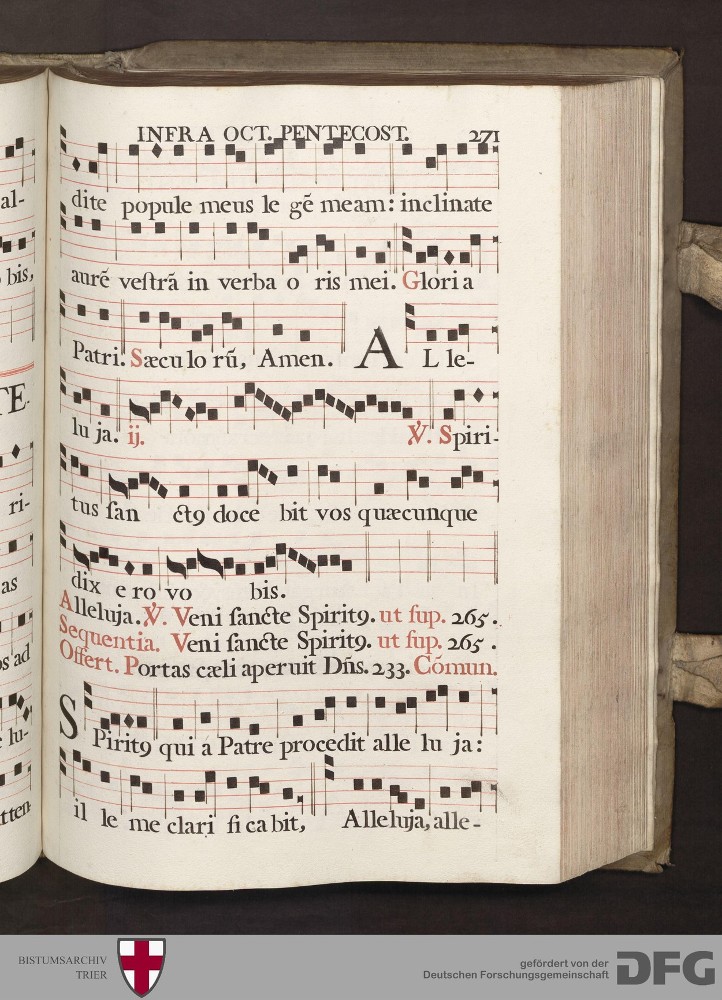 INFRA OCT. PENTECOST. 271
dite popule meus le gē meam: inclinate
aurē veſtrā in verba o ris mei. Gloria
Patri. Sæculo rū, Amen. A L le-
lu ja. ij. ℣. Spiri-
tus ſan ctꝯ doce bit vos quæcunque
dix e ro vo bis.
Alleluja. ℣. Veni ſancte Spiritꝯ. ut ſup. 265.
Sequentia. Veni ſancte Spiritꝯ. ut ſup. 265.
Offert. Portas cæli aperuit Dñs. 233. Cōmun.
SPiritꝯ qui à Patre procedit alle lu ja:
il le me clari fi ca bit, Alleluja, alle-
al-
bis,
TE.
ri-
as
os ad
lu-
tten-
BISTUMSARCHIV
TRIER
gefördert von der
Deutschen Forschungsgemeinschaft
DFG